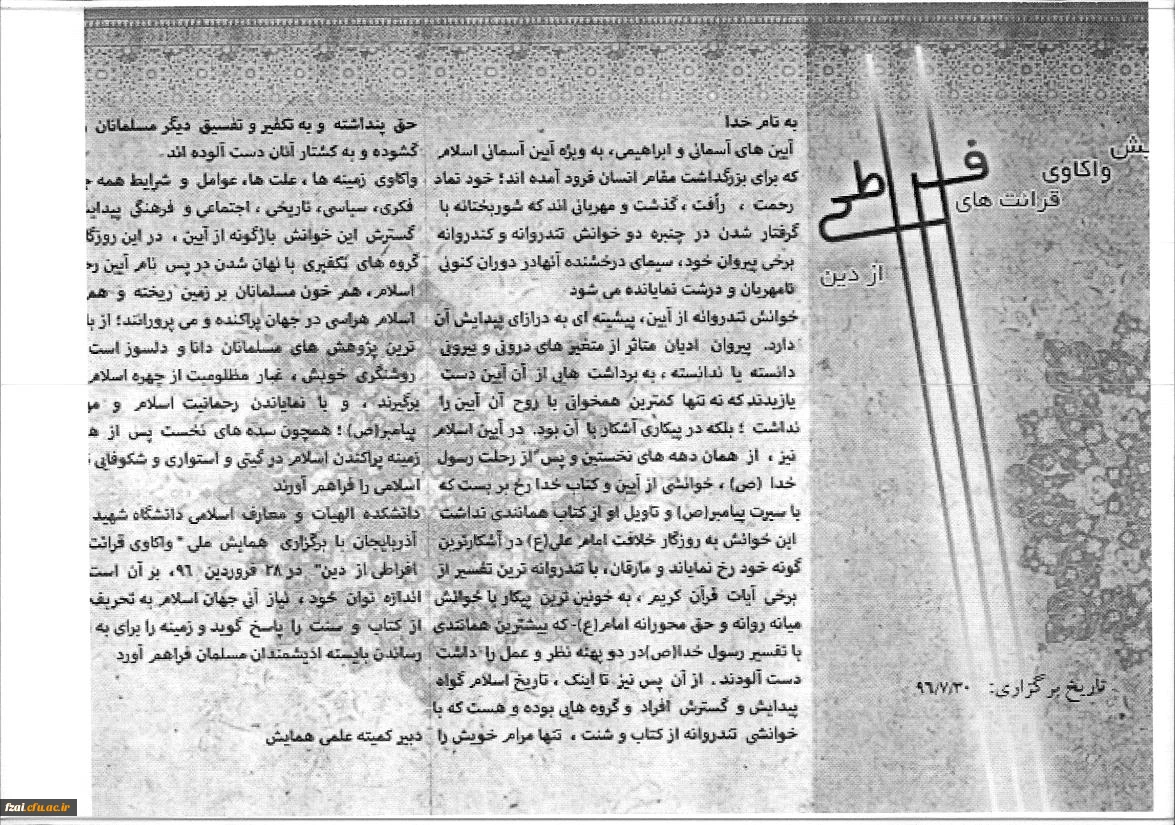 واکاوی
قرائت های
افراطی
از دین
تاریخ برگزاری: ۹۶/۷/۳۰
به نام خدا
آیین های آسمانی و ابراهیمی، به ویژه آیین آسمانی اسلام
که برای بزرگداشت مقام انسان فرود آمده اند؛ خود نماد
رحمت ، رأفت ، گذشت و مهربانی اند که شوربختانه با
گرفتار شدن در چنبره دو خوانش تندروانه و کندروانه
برخی پیروان خود، سیمای درخشنده آنهادر دوران کنونی
نامهربان و درشت نمایانده می شود.
خوانش تندروانه از آیین، پیشینه ای به درازای پیدایش آن
دارد. پیروان ادیان متاثر از متغیر های درونی و بیرونی
دانسته یا ندانسته ، به برداشت هایی از آن آیین دست
یازیدند که نه تنها کمترین همخوانی با روح آن آیین را
نداشت ؛ بلکه در پیکاری آشکار با آن بود. در آیین اسلام
نیز ، از همان دهه های نخستین و پس از رحلت رسول
خدا (ص) ، خوانشی از آیین و کتاب خدا رخ بر بست که
با سیرت پیامبر(ص) و تاویل او از کتاب همانندی نداشت
این خوانش به روزگار خلافت امام علی(ع) در آشکارترین
گونه خود رخ نمایاند و مارقان، با تندروانه ترین تفسیر از
برخی آیات قرآن کریم ، به خونین ترین پیکار با خوانش
میانه روانه و حق محورانه امام(ع)- که بیشترین همانندی
با تفسیر رسول خدا(ص)در دو پهنه نظر و عمل را داشت
دست آلودند . از آن پس نیز تا اینک ، تاریخ اسلام گواه
پیدایش و گسترش افراد و گروه هایی بوده و هست که با
خوانشی تندروانه از کتاب و سنت ، تنها مرام خویش را
حق پنداشته و به تکفیر و تفسیق دیگر مسلمانان
گشوده و به کشتار آنان دست آلوده اند.
واکاوی زمینه ها ، علت ها، عوامل و شرایط همه
فکری، سیاسی، تاریخی ، اجتماعی و فرهنگی
گسترش این خوانش باژگونه از آیین ، در این
گروه های تکفیری با نهان شدن در پس نام آیین
اسلام، هم خون مسلمانان بر زمین ریخته و
اسلام هراسی در جهان پراکنده و می پرورانند؛ از
ترین پژوهش های مسلمانان دانا و دلسوز است
روشنگری خویش ، غبار مظلومیت از چهره اسلام
برگیرند ، و با نمایاندن رحمانیت اسلام و
پیامبر(ص) ؛ همچون سده های نخست پس از
زمینه پراکندن اسلام در گیتی و استواری و شکوفایی
اسلامی را فراهم آورند
دانشکده الهیات و معارف اسلامی دانشگاه شهید
آذربایجان با برگزاری همایش ملی " واکاوی قرائت
افراطی از دین" در ۲۸ فروردین ۹۶، بر آن است
اندازه توان خود ، نیاز آنی جهان اسلام به تحریف
از کتاب و سنت را پاسخ گوید و زمینه را برای به
رساندن بایسته اندیشمندان مسلمان فراهم آورد
دبیر کمیته علمی همایش
fzai.cfu.ac.ir